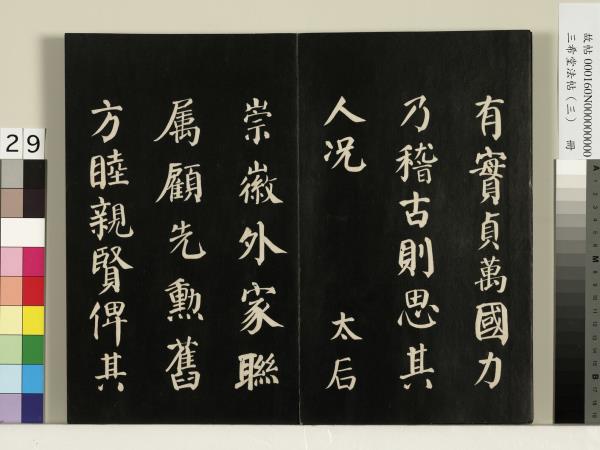 有實貞萬國力
乃稽古則思其
人况 太后
崇徽外家聯
属顧先勲舊
方睦親賢俾其
故帖 000160N000000000
三希堂法帖（三） 冊
29
A
M
B